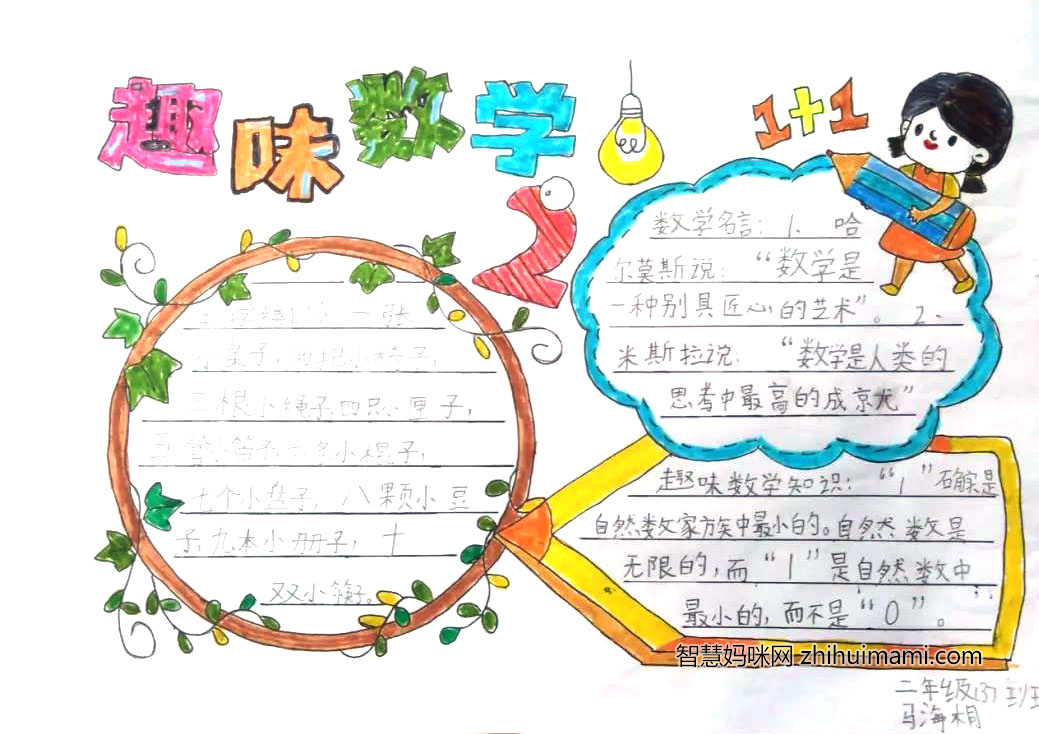 趣味数学
1+1
2
一张
小桌子,两把小椅子,
三根小绳子,四只小匣子,
五管小笛子,六条小棍子,
七个小盘子,八颗小豆
子,九本小册子,十
双小筷子。
数学名言:1、哈
尔莫斯说:“数学是
一种别具匠心的艺术”。2、
米斯拉说:“数学是人类的
思考中最高的成京尤”
趣味数学知识:“1”确実是
自然数家族中最小的。自然数是
无限的,而“1”是自然数中
最小的,而不是“0”。
智慧妈咪网 zhihuimami.com
二年级(3)班
马海相